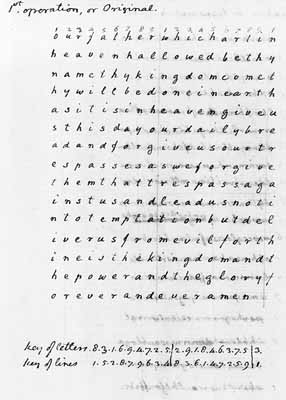 1st. operation, or Original.
1 2 3 4 5 6 7 8 9 1 2 3 4 5 6 7 8 9 1
o u r f a t h e r w h i c h a r t i n
h e a v e n h a l l o w e d b e t h y
n a m e t h y k i n g d o m c o m e t
h y w i l l b e d o n e i n e a r t h
a s i t i s i n h e a v e n g i v e u
s t h i s d a y o u r d a i l y b r e
a d a n d f o r g i v e u s o u r t r
e s p a s s e s a s w e f o r g i v e
t h e m t h a t t r e s p a s s a g a
i n s t u s a n d l e a d u s n o t i
n t o t e m p t a t i o n b u t d e l
i v e r u s f r o m e v i l f o r t h
i n e i s t h e k i n g d o m a n d t
h e p o w e r a n d t h e g l o r y f
o r e v e r a n d e v e r a m e n
key of letters. 8.3.1.6.9.4.7.2.5|2.9.1.8.4.6.3.7.5|3.
key of lines 1.5.2.8.7.9.6.3.4|8.3.6.1.4.7.2.5.9|1.